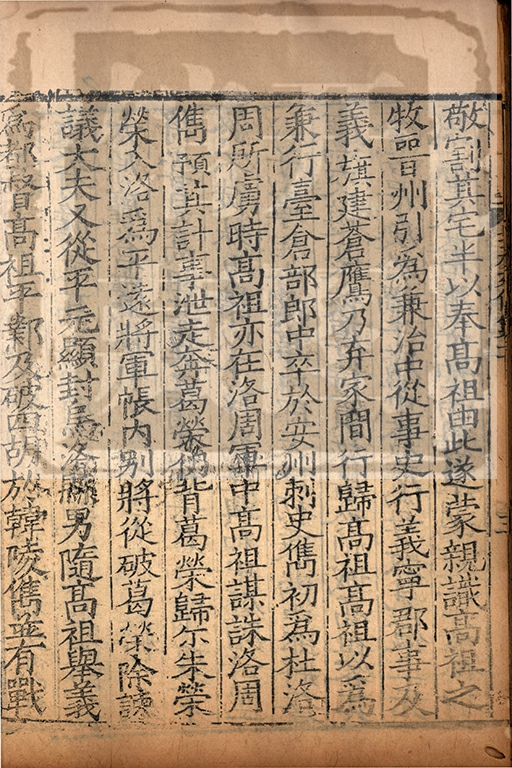 敬割其宅半以奉髙祖由此遂蒙親識髙祖之
牧晋州引爲兼治中從事史行義寧郡事及
義旗建蒼鷹乃弃家間行歸髙祖髙祖以爲
兼行臺倉部郎中卒於安州刺史雋初爲杜洛
周所虜時髙祖亦在洛周軍中髙祖謀誅洛周
雋預其計事泄走奔葛榮復背葛榮歸尒朱榮
榮入洛爲平遠將軍帳内别將從破葛榮除諫
議大夫又從平元顥封爲洛縣男隨髙祖舉義
爲都督髙祖平鄴及破四胡於韓陵雋並有戰